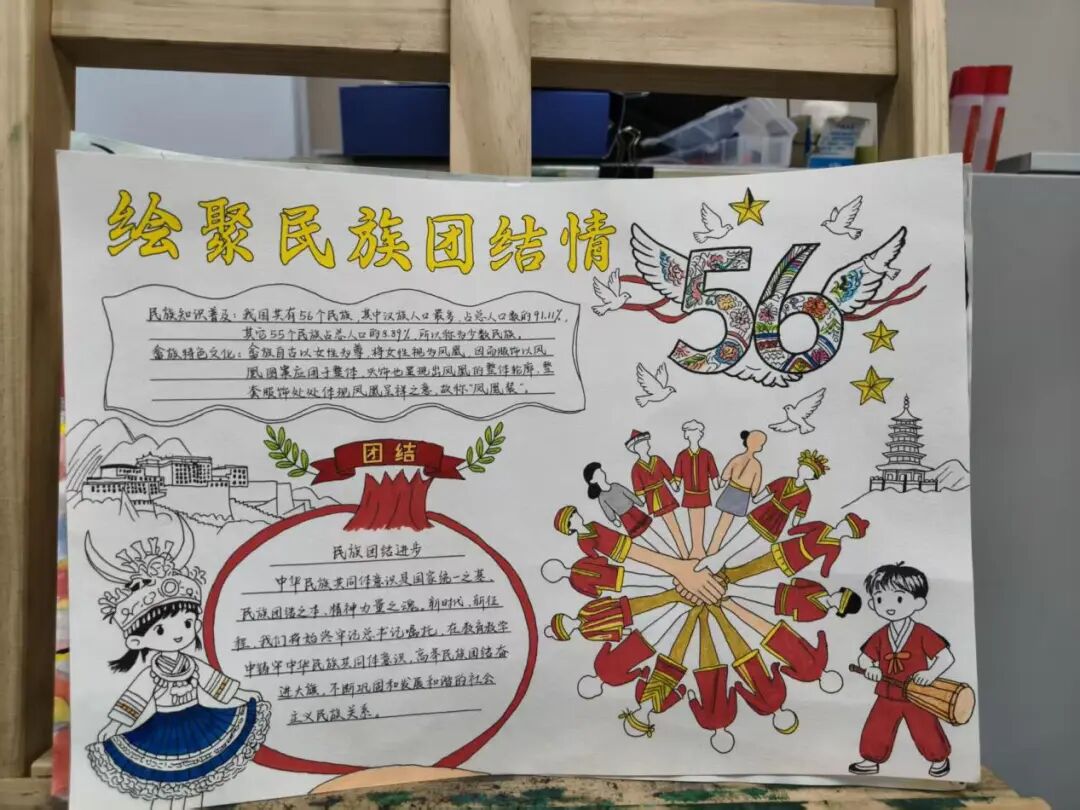 绘聚民族团结情
56
民族知识普及：我国共有56个民族，其中汉族人口最多，占总人口数的91.11%，
其它55个民族占总人口的8.89%，所以称为少数民族。
畲族特色文化：畲族自古以女性为尊，将女性视为凤凰，因而服饰以凤
凰图案应用于整体，头饰也呈现出凤凰的整体轮廓，整
套服饰处处体现凤凰呈祥之意，故称“凤凰装”。
团结
民族团结进步
中华民族共同体意识是国家统一之基，
民族团结之本，精神力量之魂。新时代、新征
程，我们将始终牢记总书记嘱托，在教育教学
中铸牢中华民族共同体意识，高举民族团结奋
进大旗，不断巩固和发展和谐的社会
主义民族关系。